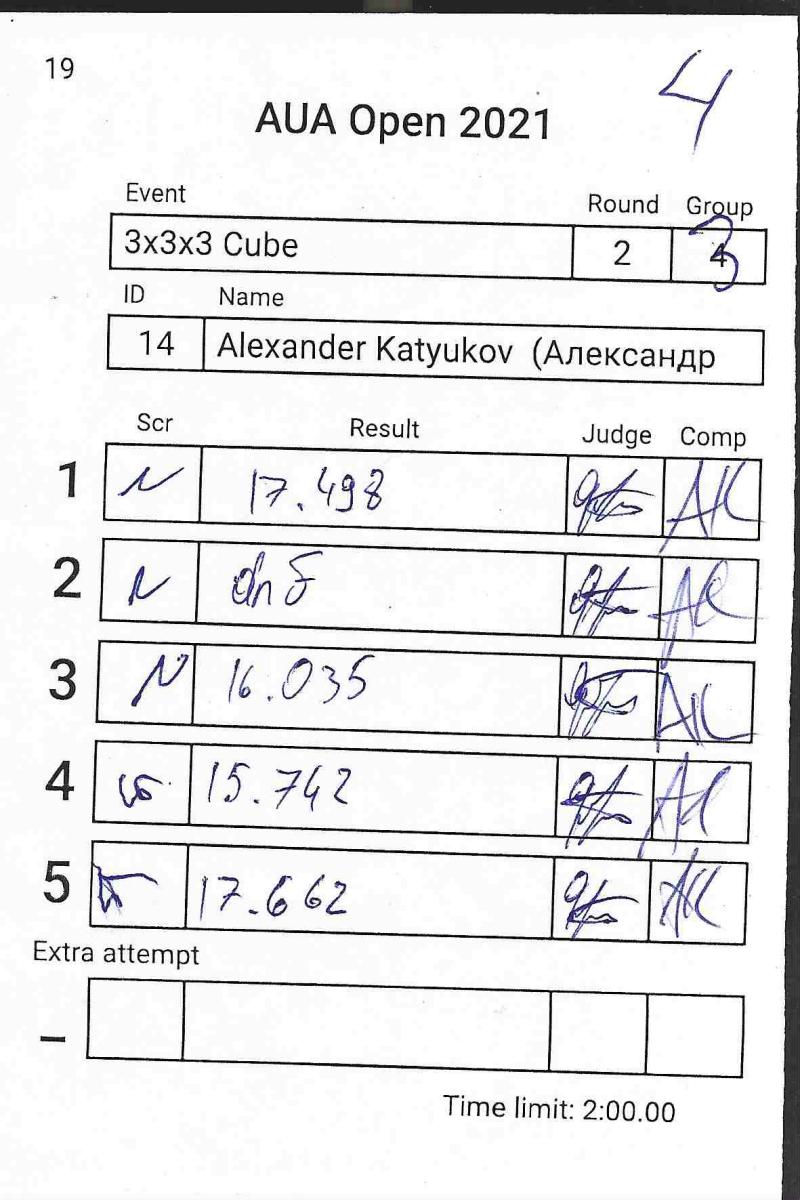 19
4
AUA Open 2021
Event Round Group
3x3x3 Cube 2 3
ID Name
14 Alexander Katyukov (Александр
Scr Result Judge Comp
1 17.498
2 dnf
3 16.035
4 15.742
5 17.662
Extra attempt
–
Time limit: 2:00.00